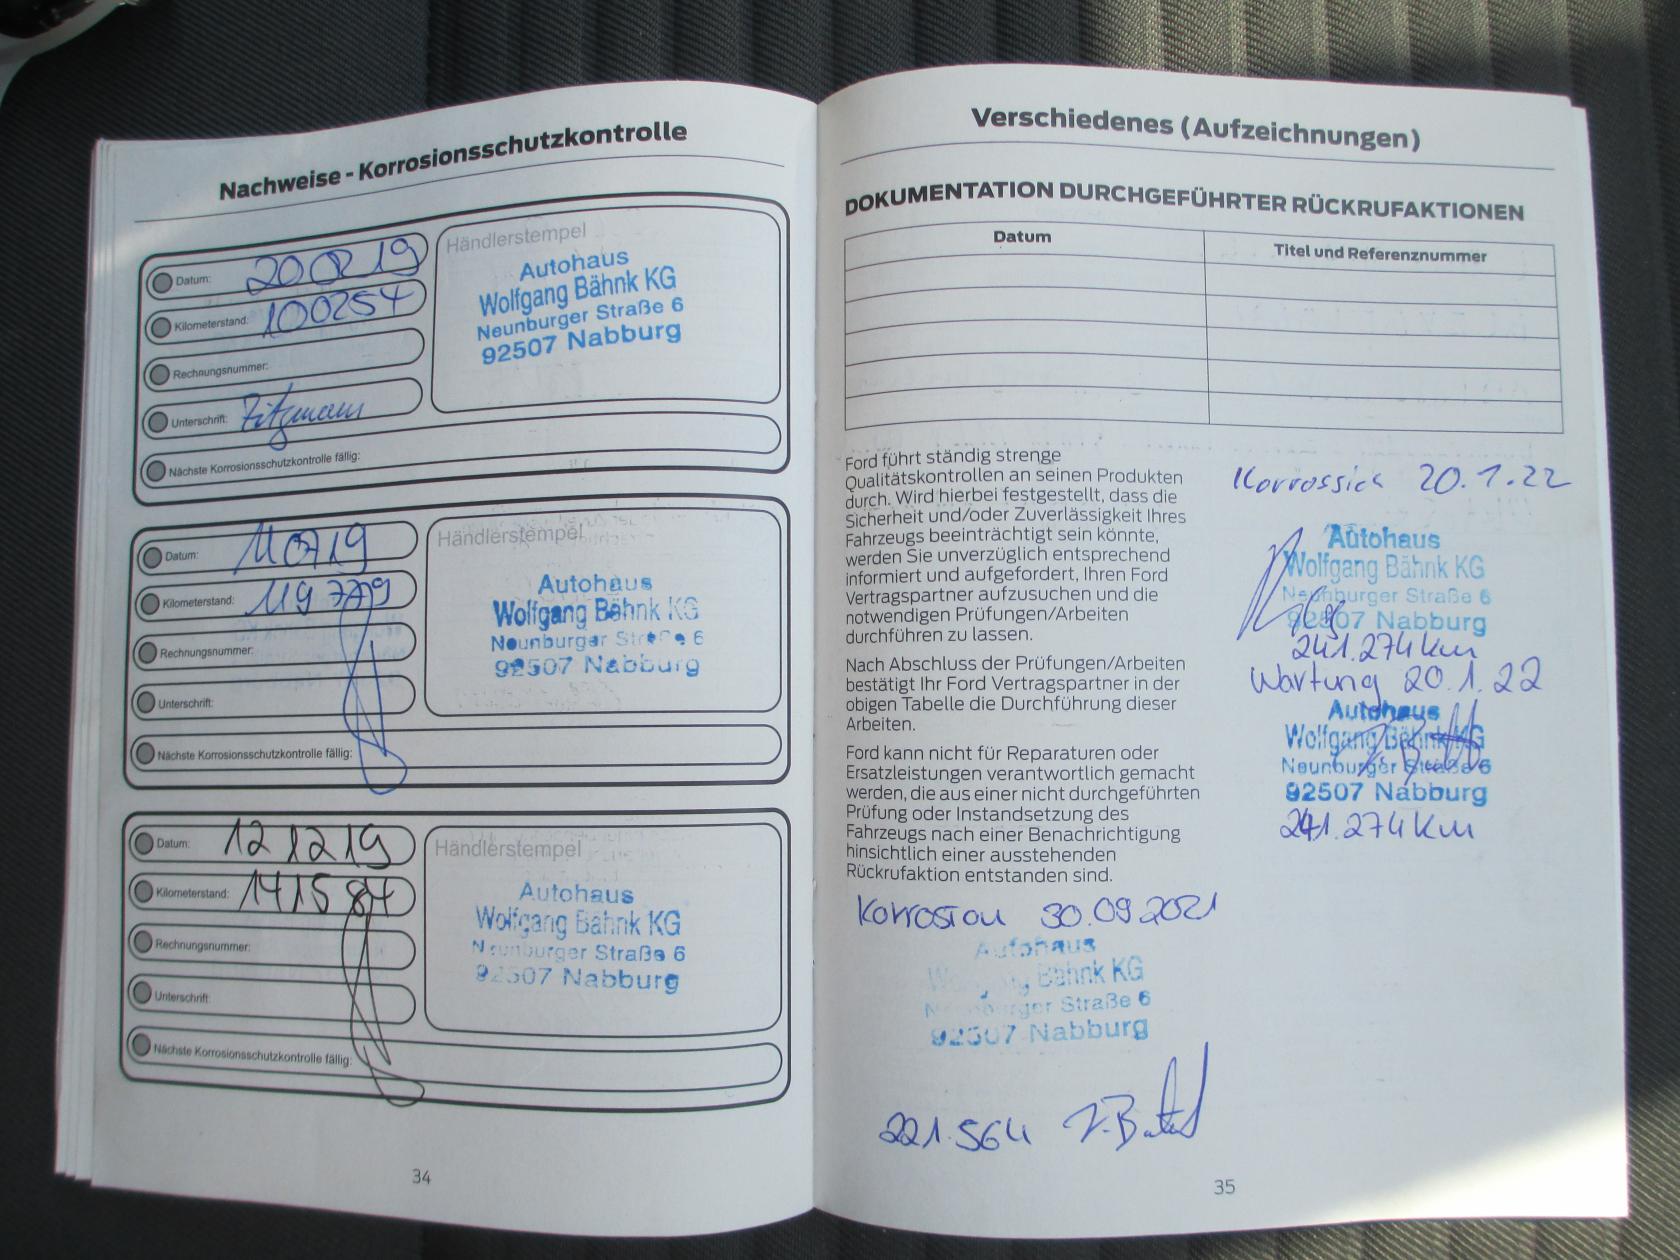 Nachweise - Korrosionsschutzkontrolle
Händlerstempel
Datum: 20 02 19
Kilometerstand: 100254
Rechnungsnummer:
Unterschrift:
Nächste Korrosionsschutzkontrolle fällig:
Autohaus
Wolfgang Bähnk KG
Neunburger Straße 6
92507 Nabburg
Händlerstempel
Datum: 11 07 19
Kilometerstand: 119 779
Rechnungsnummer:
Unterschrift:
Nächste Korrosionsschutzkontrolle fällig:
Autohaus
Wolfgang Bähnk KG
Neunburger Straße 6
92507 Nabburg
Händlerstempel
Datum: 12 12 19
Kilometerstand: 141584
Rechnungsnummer:
Unterschrift:
Nächste Korrosionsschutzkontrolle fällig:
Autohaus
Wolfgang Bähnk KG
Neunburger Straße 6
92507 Nabburg
34
Verschiedenes (Aufzeichnungen)
DOKUMENTATION DURCHGEFÜHRTER RÜCKRUFAKTIONEN
Datum
Titel und Referenznummer
Ford führt ständig strenge
Qualitätskontrollen an seinen Produkten
durch. Wird hierbei festgestellt, dass die
Sicherheit und/oder Zuverlässigkeit Ihres
Fahrzeugs beeinträchtigt sein könnte,
werden Sie unverzüglich entsprechend
informiert und aufgefordert, Ihren Ford
Vertragspartner aufzusuchen und die
notwendigen Prüfungen/Arbeiten
durchführen zu lassen.
Nach Abschluss der Prüfungen/Arbeiten
bestätigt Ihr Ford Vertragspartner in der
obigen Tabelle die Durchführung dieser
Arbeiten.
Ford kann nicht für Reparaturen oder
Ersatzleistungen verantwortlich gemacht
werden, die aus einer nicht durchgeführten
Prüfung oder Instandsetzung des
Fahrzeugs nach einer Benachrichtigung
hinsichtlich einer ausstehenden
Rückrufaktion entstanden sind.
Korrosion 30.09.2021
Autohaus
Wolfgang Bähnk KG
Neunburger Straße 6
92507 Nabburg
221.564
20.1.22
Autohaus
Wolfgang Bähnk KG
Neunburger Straße 6
92507 Nabburg
241.274 km
Wartung 20.1.22
Autohaus
Wolfgang Bähnk KG
Neunburger Straße 6
92507 Nabburg
241.274 km
35